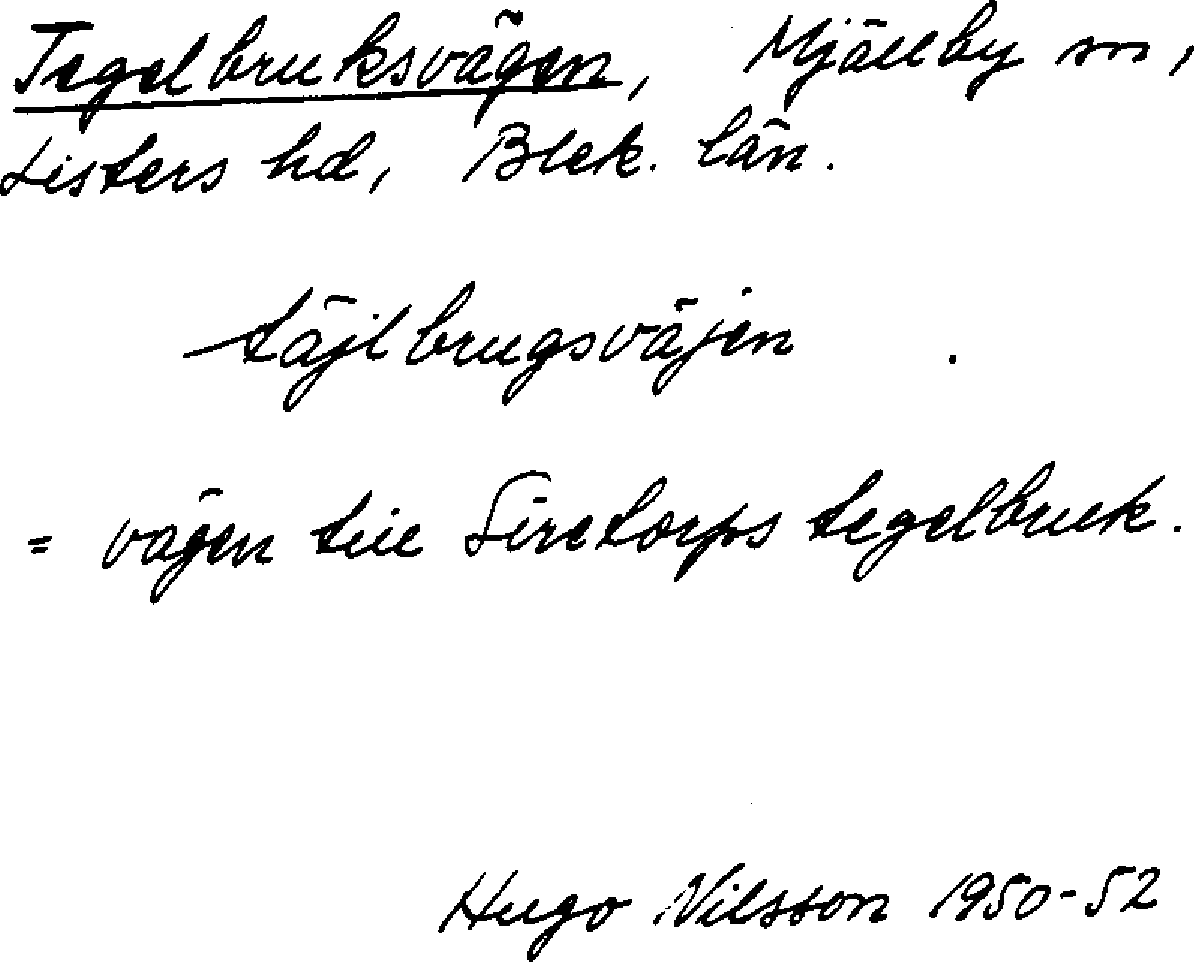 Tegelbruksvägen, Mjällby sn,
Listers hd, Blek. län.
täjlbrugsväjen .
= vägen till Siretorps tegelbruk.
Hugo Nilsson 1950-52